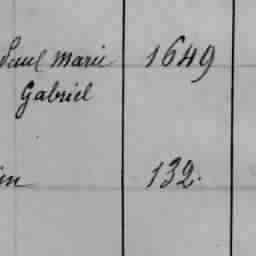 Paul Marie 1649
Gabriel
132.